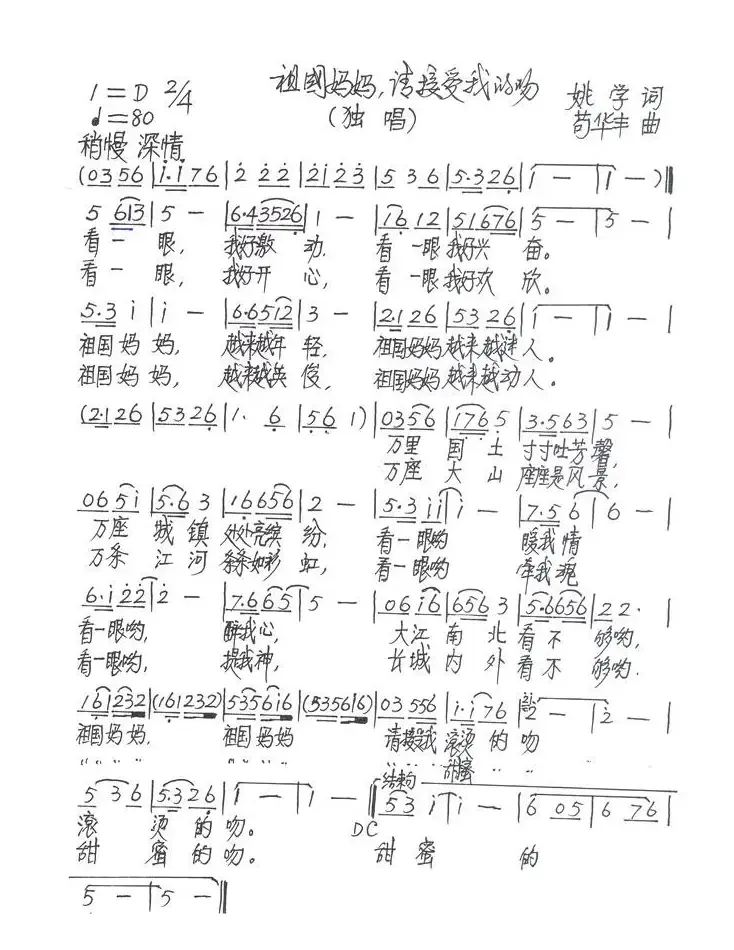 祖国妈妈,请接受我的吻
1=D 2/4
♩=80
(独唱)
姚学词
苟华丰曲
稍慢 深情
(0356|i·i76|2 22|2i23|5 36|5·326|i —|i —)‖
5 613|5 —|6·43526|1 —|i6 12|51676|5 —|5 —|
看一眼, 我好激动, 看一眼我好兴奋。
看一眼, 我好开心, 看一眼我好欢欣。
5·3 i|i —|6·6512|3 —|2·126|5326|1 —|1 —|
祖国妈妈, 越来越年轻, 祖国妈妈越来越迷人。
祖国妈妈, 越来越英俊, 祖国妈妈越来越动人。
(2·126|5326|1· 6|56 1)|0356|176 5|3·563|5 —|
万里国土寸寸吐芳馨,
万座大山座座是风景,
065i|5·6 3|16656|2 —|5·3 ii|i —|7·5 6|6 —|
万座城镇处处亮缤纷, 看一眼哟 暖我情
万条江河条条如彩虹, 看一眼哟 牵我魂
6·i22|2 —|7·665|5 —|06i6|656 3|5·6656|22·|
看一眼哟, 醉我心, 大江南北看不够哟,
看一眼哟, 提我神, 长城内外看不够哟.
161232|(161232)|535616|(535616)|03 556|i·i76|2 —|2 —|
祖国妈妈, 祖国妈妈 请接受我滚烫的吻
" " " " " " " " " " " " 甜蜜 " "
结束句
5 36|5·326|1 —|1 —‖53 i|i —|6 05|6 76|
滚烫的吻。 DC
甜蜜的吻。 甜蜜的
5 —|5 —‖